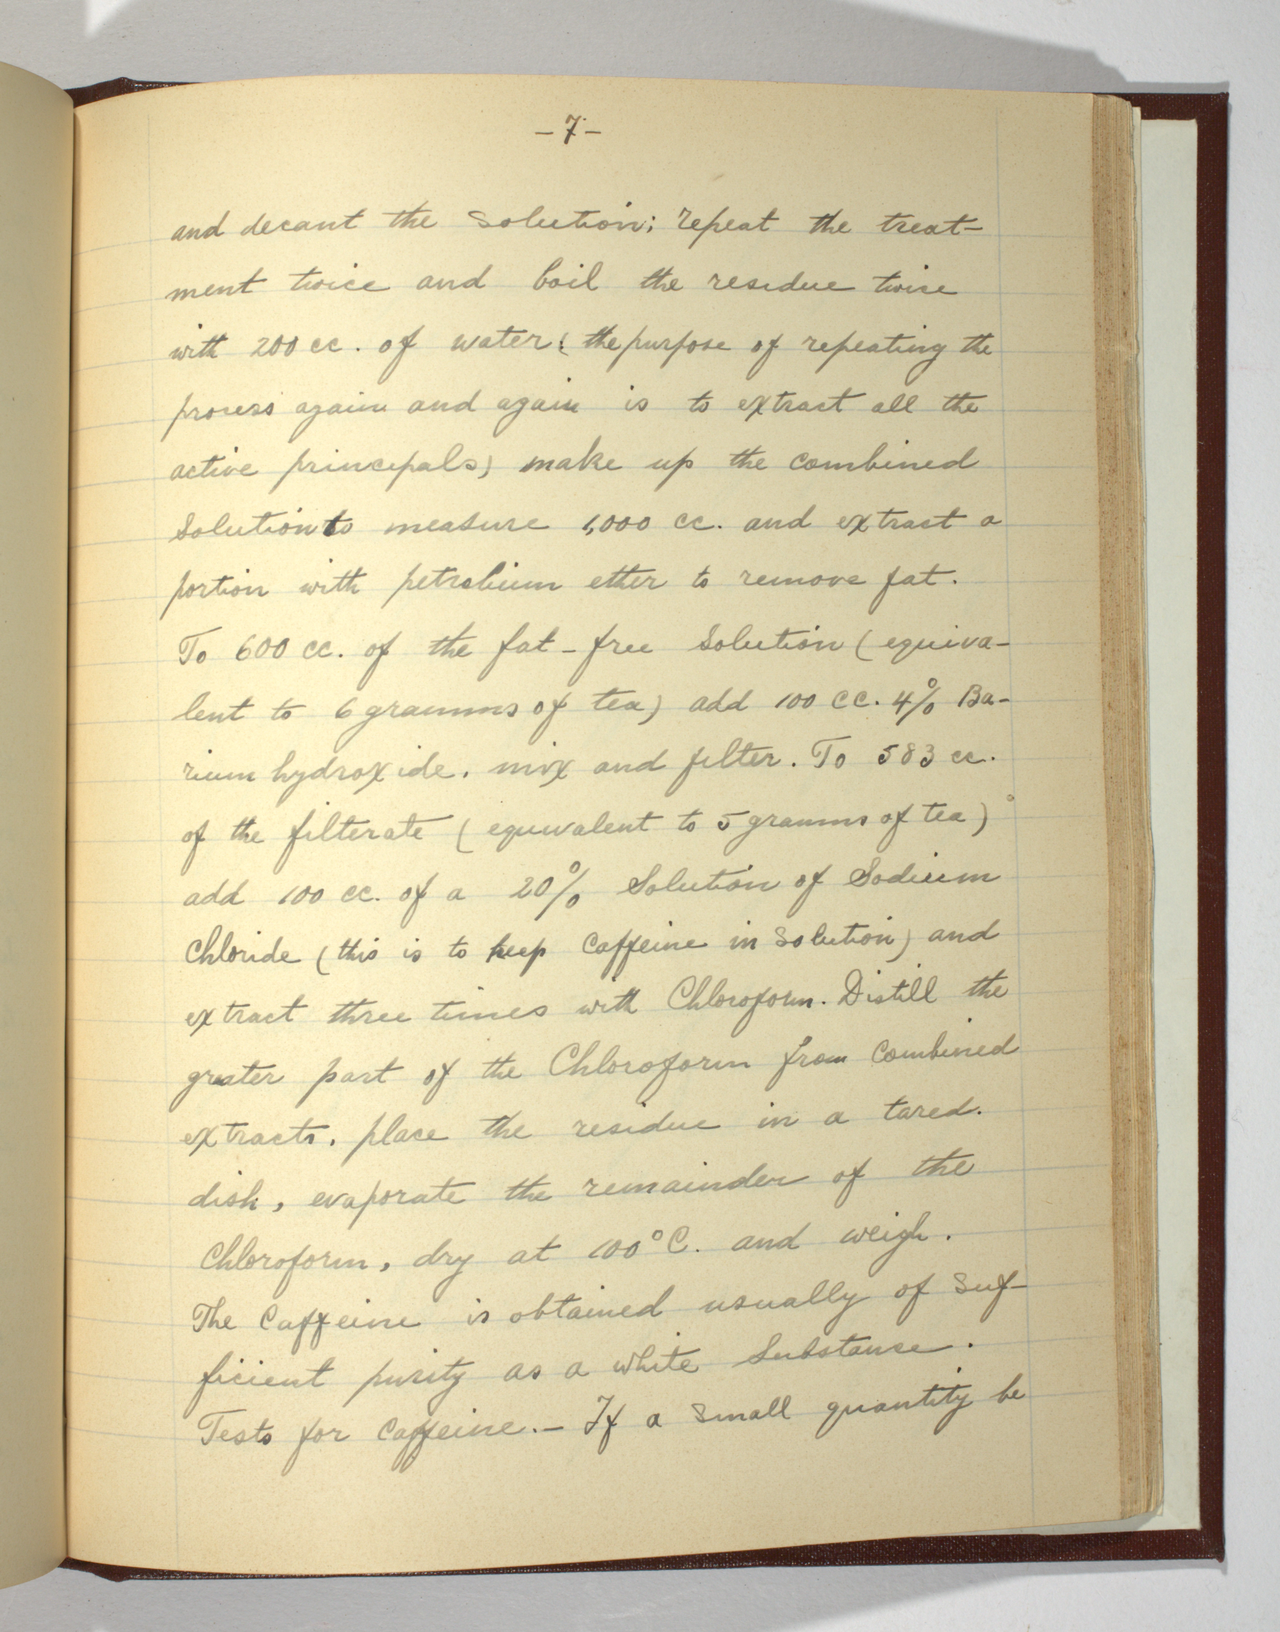 -7-
and decant the solution; repeat the treat-
ment twice and boil the residue twice
with 200 cc. of water (the purpose of repeating the
process again and again is to extract all the
active principals) make up the combined
Solution to measure 1,000 cc. and extract a
portion with petroleum ether to remove fat.
To 600 cc. of the fat-free Solution (equiva-
lent to 6 gramms of tea) add 100 cc. 4% Ba-
rium hydroxide. mix and filter. To 583 cc.
of the filterate (equivalent to 5 gramms of tea)
add 100 cc. of a 20% Solution of Sodium
Chloride (this is to keep Caffeine in solution) and
extract three times with Chloroform. Distill the
greater part of the Chloroform from Combined
extracts. place the residue in a tared.
dish, evaporate the remainder of the
Chloroform, dry at 100°C. and weigh.
The Caffeine is obtained usually of suf-
ficient purity as a white Substance.
Tests for Caffeine.- If a small quantity be